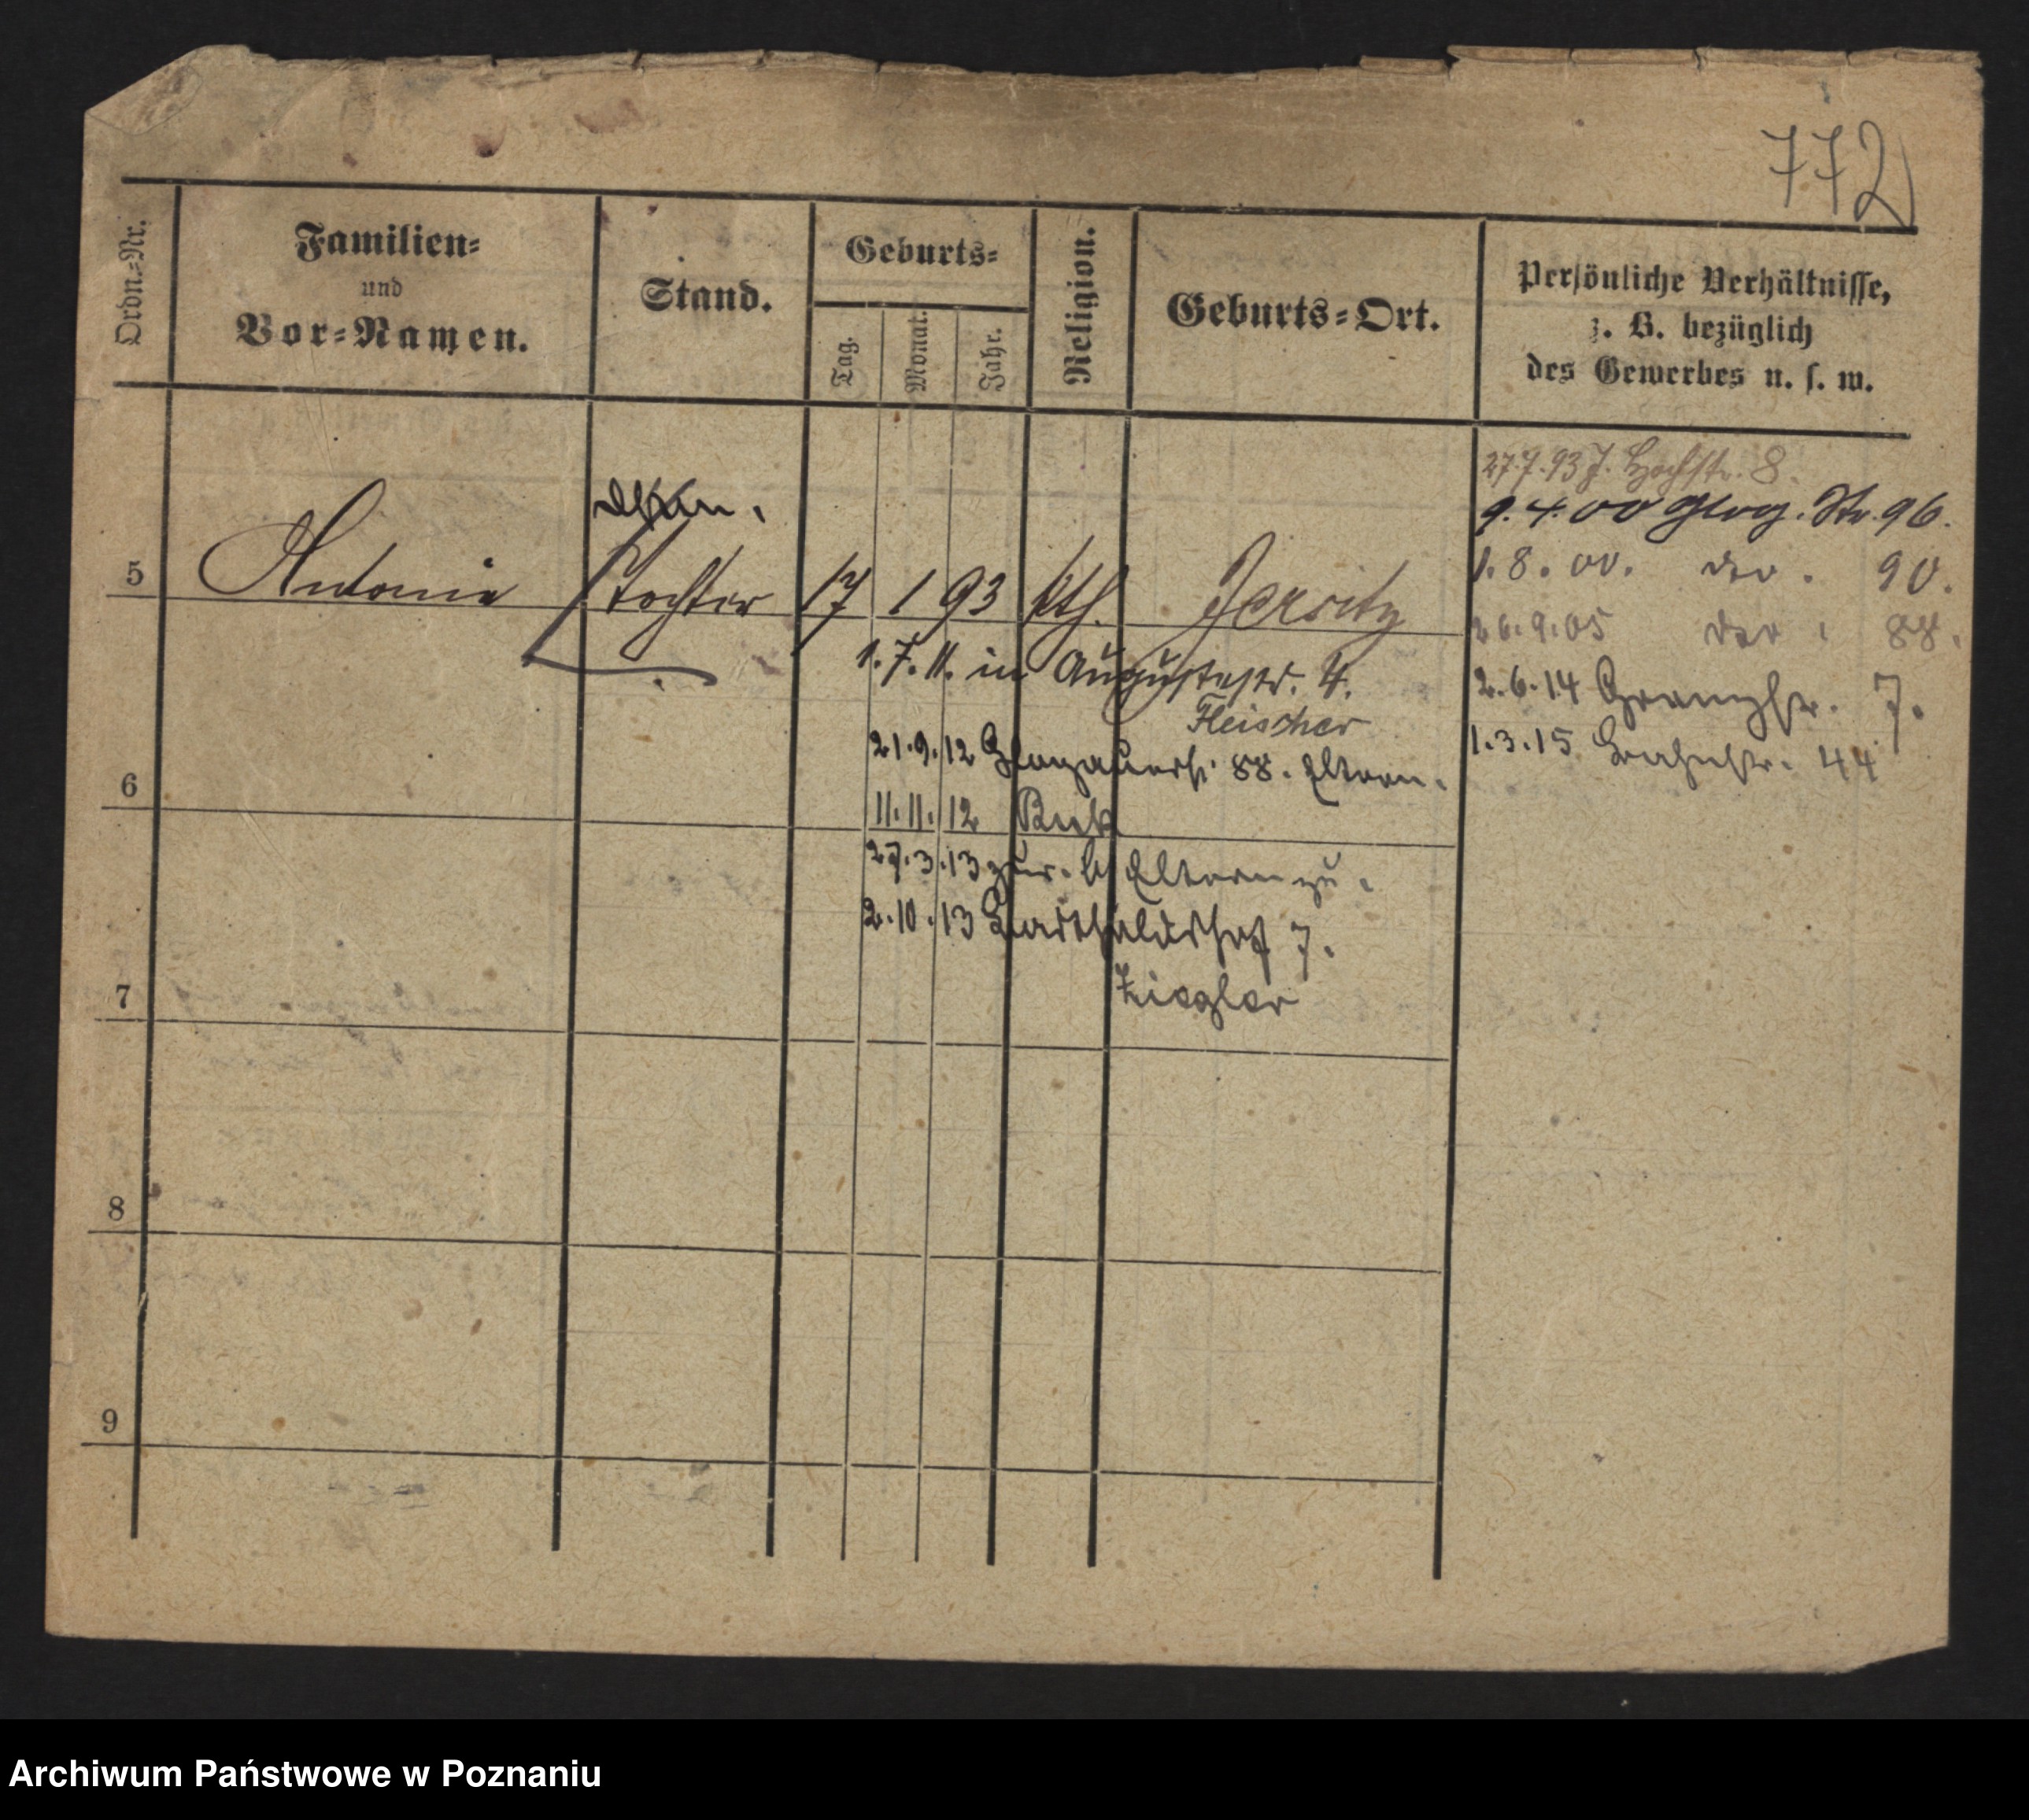 772
Ordn.=Nr.
Familien=
und
Vor=Namen.
Stand.
Geburts=
Tag.
Monat.
Jahr.
Religion.
Geburts=Ort.
Persönliche Verhältnisse,
z. B. bezüglich
des Gewerbes u. s. w.
27.7.93 J. Hochstr. 8.
9.4.00 Glog. Str. 96.
1.8.00. do. 90.
26.9.05 do. 88.
2.6.14 Granzstr. 7.
1.3.15 Bahnstr. 44
5 Antonie Tochter 17 1 93 kth. Jersitz
1.7.11. in Augustastr. 4.
Fleischer
21.9.12 Glogauerst. 88. Eltern.
6
11.11.12 Buk
27.3.13 zur. b/ Eltern zu.
2.10.13 Bartholdshof 7.
Ziegler
7
8
9
Archiwum Państwowe w Poznaniu